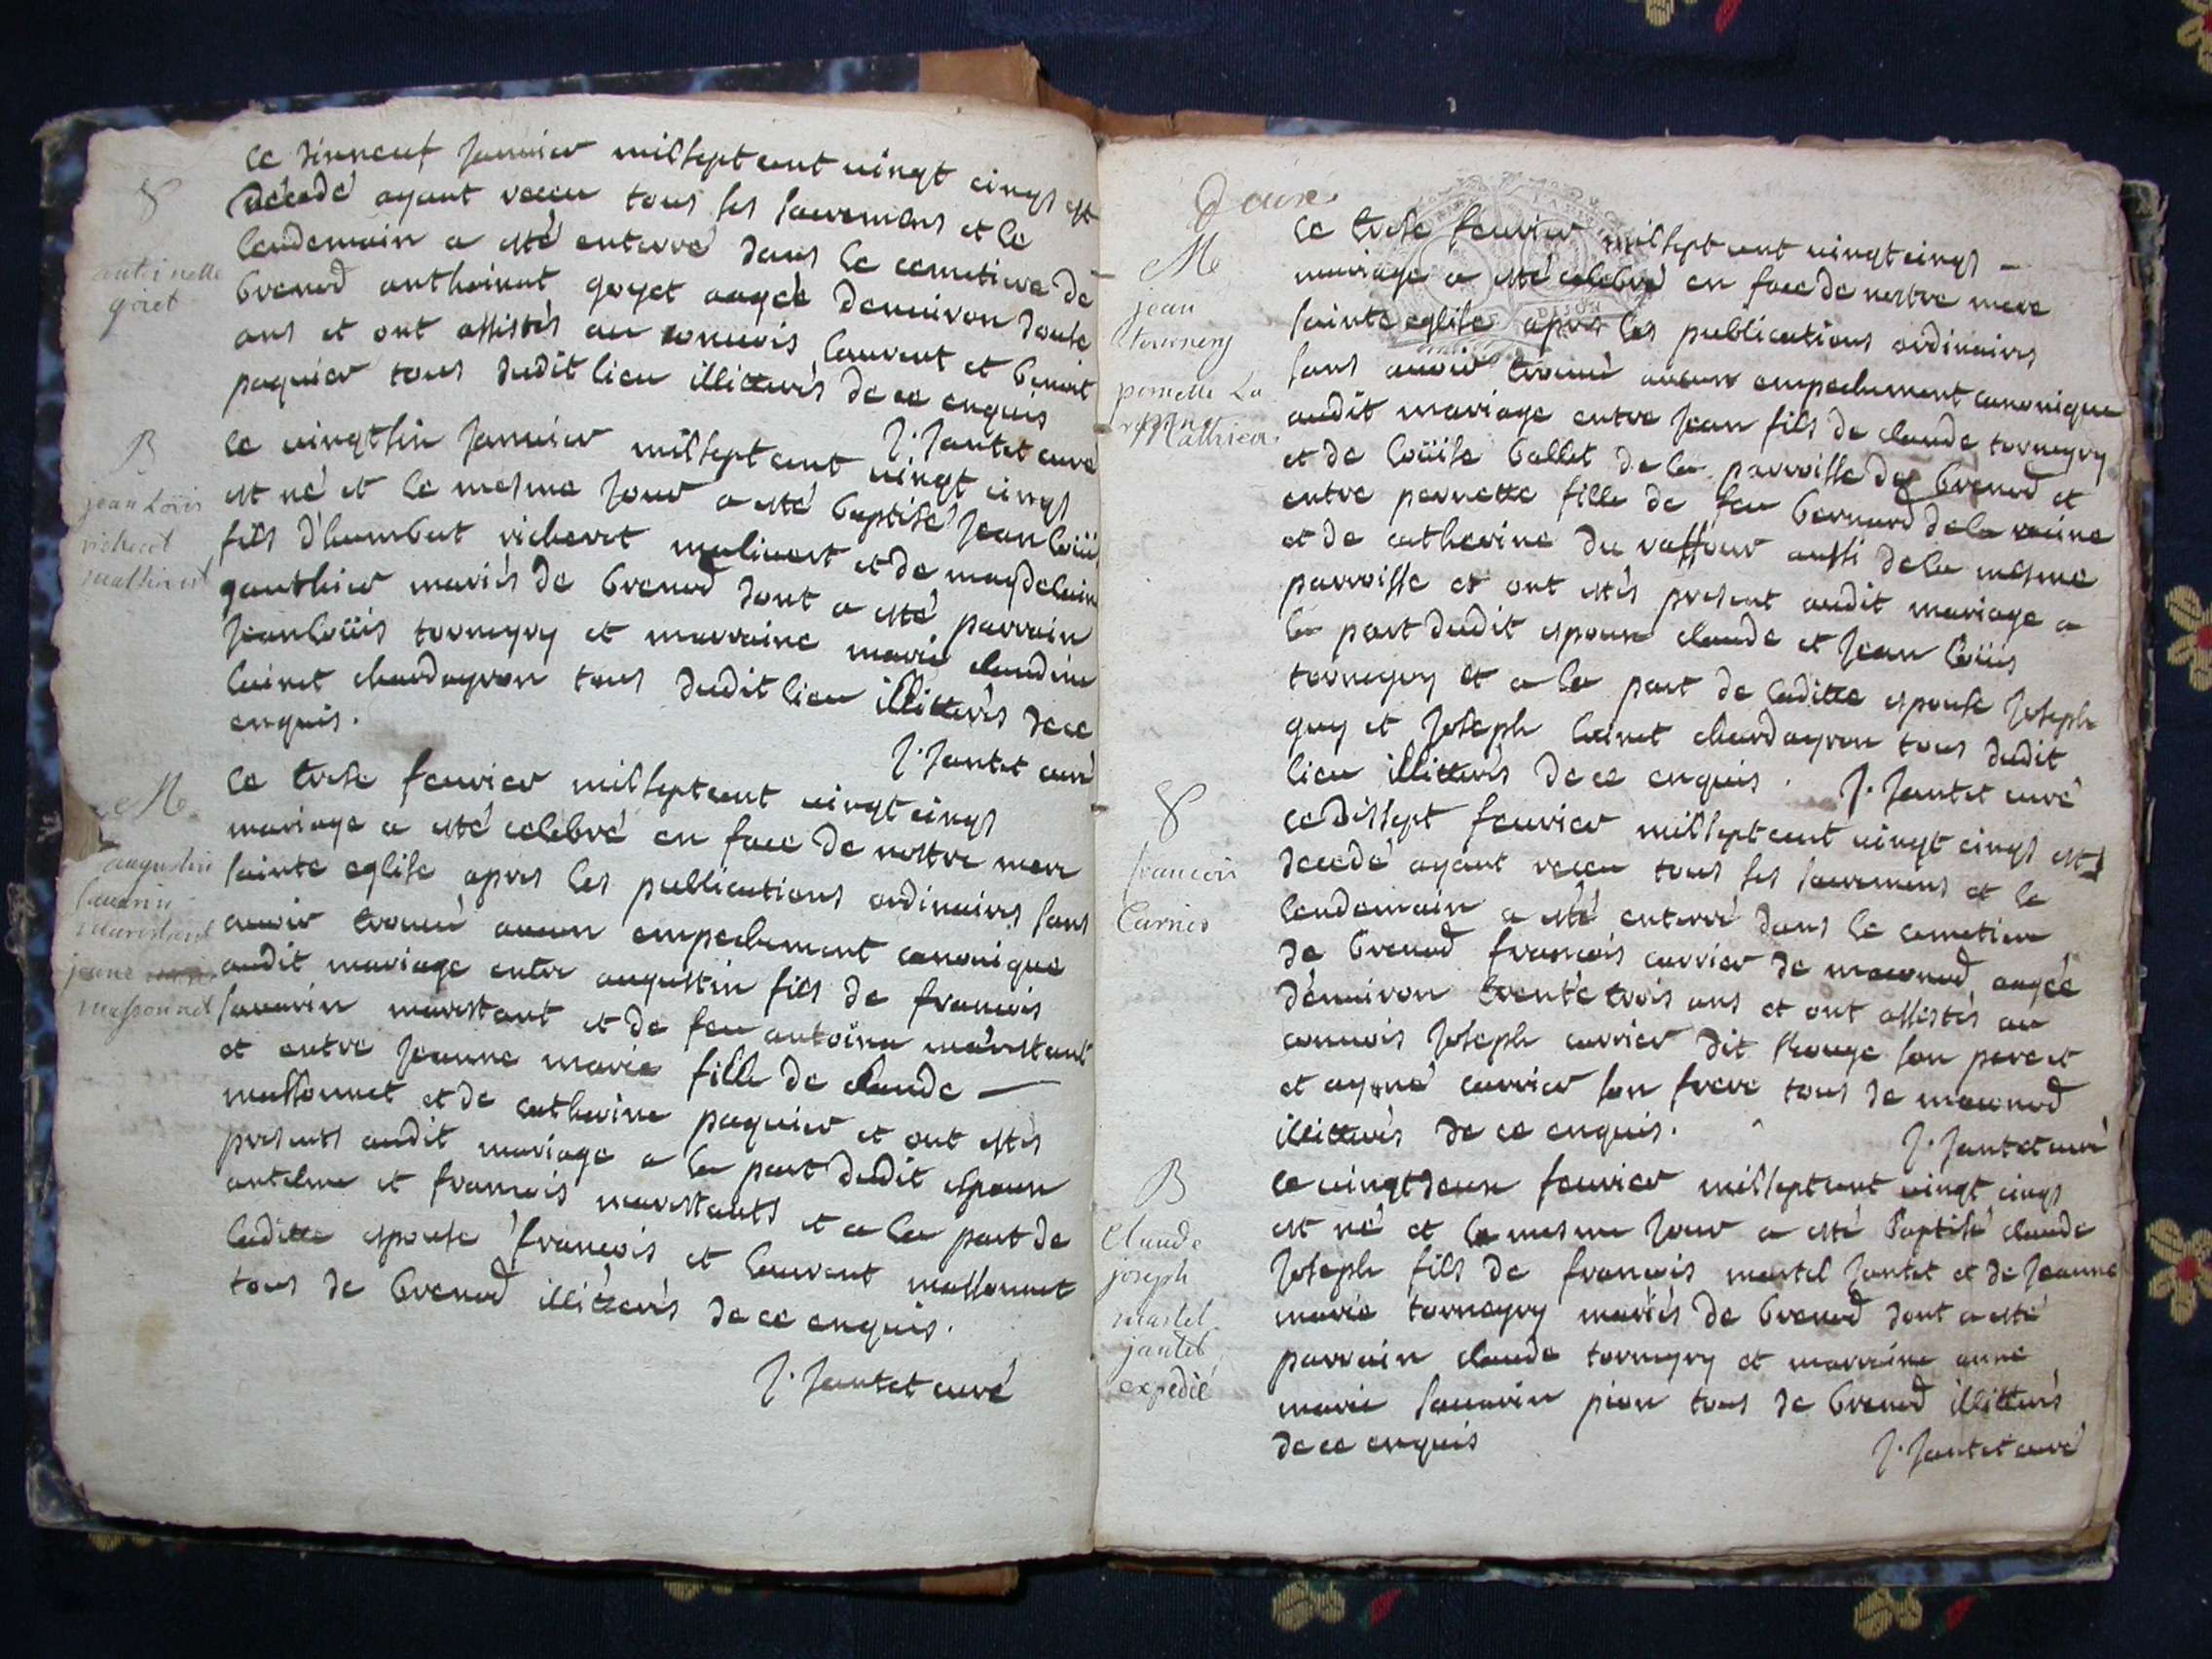 S
antoinette
goiet
le dixneuf januier mil sept cent vingt cinqs est
décedé ayant receu tous ses sacremens et le
lendemain a esté enterré dans le cemetiere de
brenod anthoinat goyet aagée denuiron douse
ans et ont assistés au conuois laurent et benoit
paquier tous dudit lieu illitterés de ce enquis
J. Jantet curé
B
jean Loüis
richerot
mathieu
le vingtsix januier mil sept cent vingt cinqs
est né et le mesme jour a esté baptisé jean loüis
fils d'humbert richerot et de magdelaine
gauthier mariés de brenod dont a esté parrain
jean loüis torneyry et marraine marie claudine
chardeyron tous dudit lieu illitterés de ce
enquis.
J. Jantet curé
M
augustin
sauarin
marestant
jeane
massonnet
le trese feurier mil sept cent vingt cinqs
mariage a esté celebré en face de nostre mere
sainte eglise apres les publications ordinaires sans
auoir trouué aucun empechement canonique
audit mariage entre augustin fils de francois
sauarin marestant et de feu antoina marestant
et entre jeanne marie fille de claude —
massonnet et de catherine paquier et ont estés
presents audit mariage a la part dudit espoux
antelme et francois marestants et a la part de
laditte espouse francois et laurent massonnet
tous de brenod illiterés de ce enquis.
J. Jantet curé
Douze
M
jean
tournery
pernette La
Mathieu
le trese feurier mil sept cent vingt cinqs —
mariage a esté celebré en face de nostre mere
sainte eglise apres les publications ordinaires
sans auoir trouué aucun empechement canonique
audit mariage entre jean fils de claude torneyry
et de loüise ballet de la parroisse de brenod et
entre pernette fille de feu bernard de la
et de catherine du raffour aussi de la mesme
parroisse et ont estés present audit mariage a
la part dudit espoux claude et jean loüis
torneyry et a la part de laditte espouse joseph
guy et joseph chardeyron tous dudit
lieu illitterés de ce enquis. J. Jantet curé
S
francois
Carrier
le dissept feurier mil sept cent vingt cinqs est
decedé ayant receu tous ses sacremens et le
lendemain a esté enterré dans le cemetiere
de brenod francois carrier de maconod aagée
dénuiron trente trois ans et ont assistés au
conuois joseph carrier dit Rouge son pere et
et aymé carrier son frere tous de maconod
illitterés de ce enquis.
J. Jantet curé
B
Claude
joseph
martel
jantet
expedié
le vingt deux feurier mil sept cent vingt cinqs
est né et le mesme jour a esté Baptisé claude
joseph fils de francois martel jantet et de jeanne
marie torneyry mariés de brenod dont a esté
parrain claude torneyry et marraine anne
marie sauarin pion tous de brenod illitterés
de ce enquis
J. Jantet curé